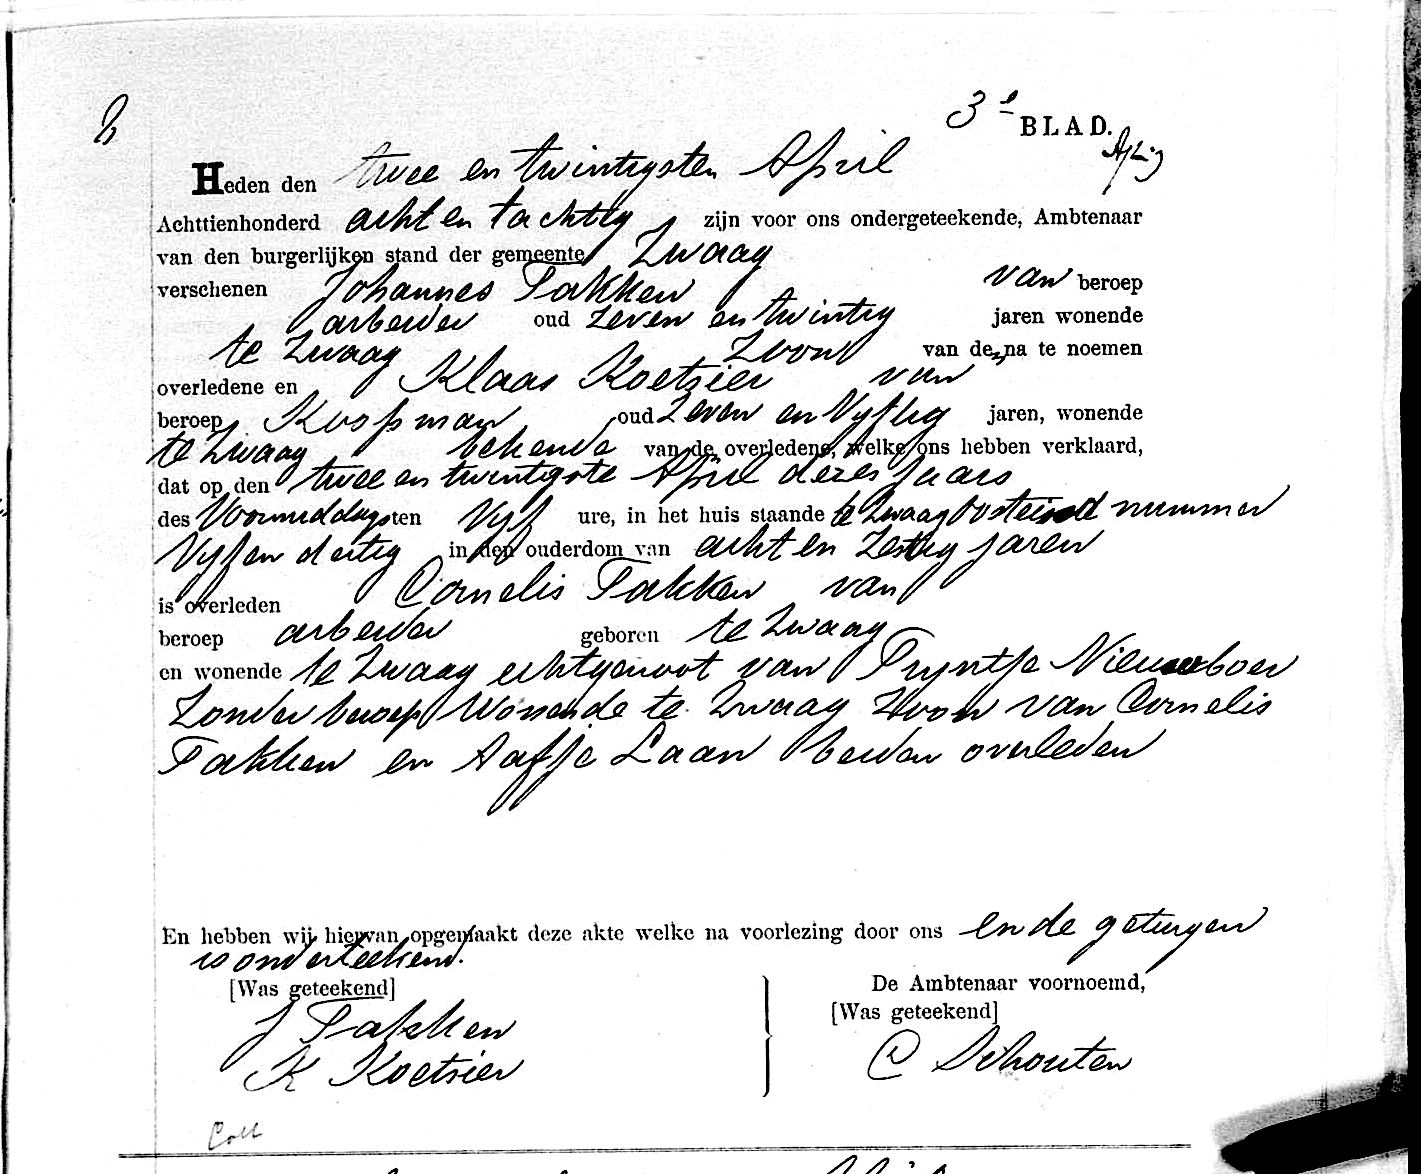 3e BLAD.
Heden den twee en twintigsten April
Achttienhonderd acht en tachtig zijn voor ons ondergeteekende, Ambtenaar
van den burgerlijken stand der gemeente Zwaag
verschenen Johannes Takken van beroep
arbeider oud zeven en twintig jaren wonende
te Zwaag Zoon van den na te noemen
overledene en Klaas Koetsier van
beroep Koopman oud Zeven en Vyftig jaren, wonende
te Zwaag bekende van de overledene, welke ons hebben verklaard,
dat op den twee en twintigste April dezes Jaars
des Voormiddags ten Vyf ure, in het huis staande te Zwaag Oosteind nummer
Vyf en dertig in den ouderdom van acht en Zestig jaren
is overleden Cornelis Takken van
beroep arbeider geboren te Zwaag
en wonende te Zwaag echtgenoot van Tryntje Nieuweboer
Zonder beroep Wonende te Zwaag Zoon van Cornelis
Takken en Aafje Laan beiden overleden
En hebben wij hiervan opgemaakt deze akte welke na voorlezing door ons en de getuigen
is onderteekend.
[Was geteekend] De Ambtenaar voornoemd,
[Was geteekend]
J Takken
K Koetsier C Schouten
Coll